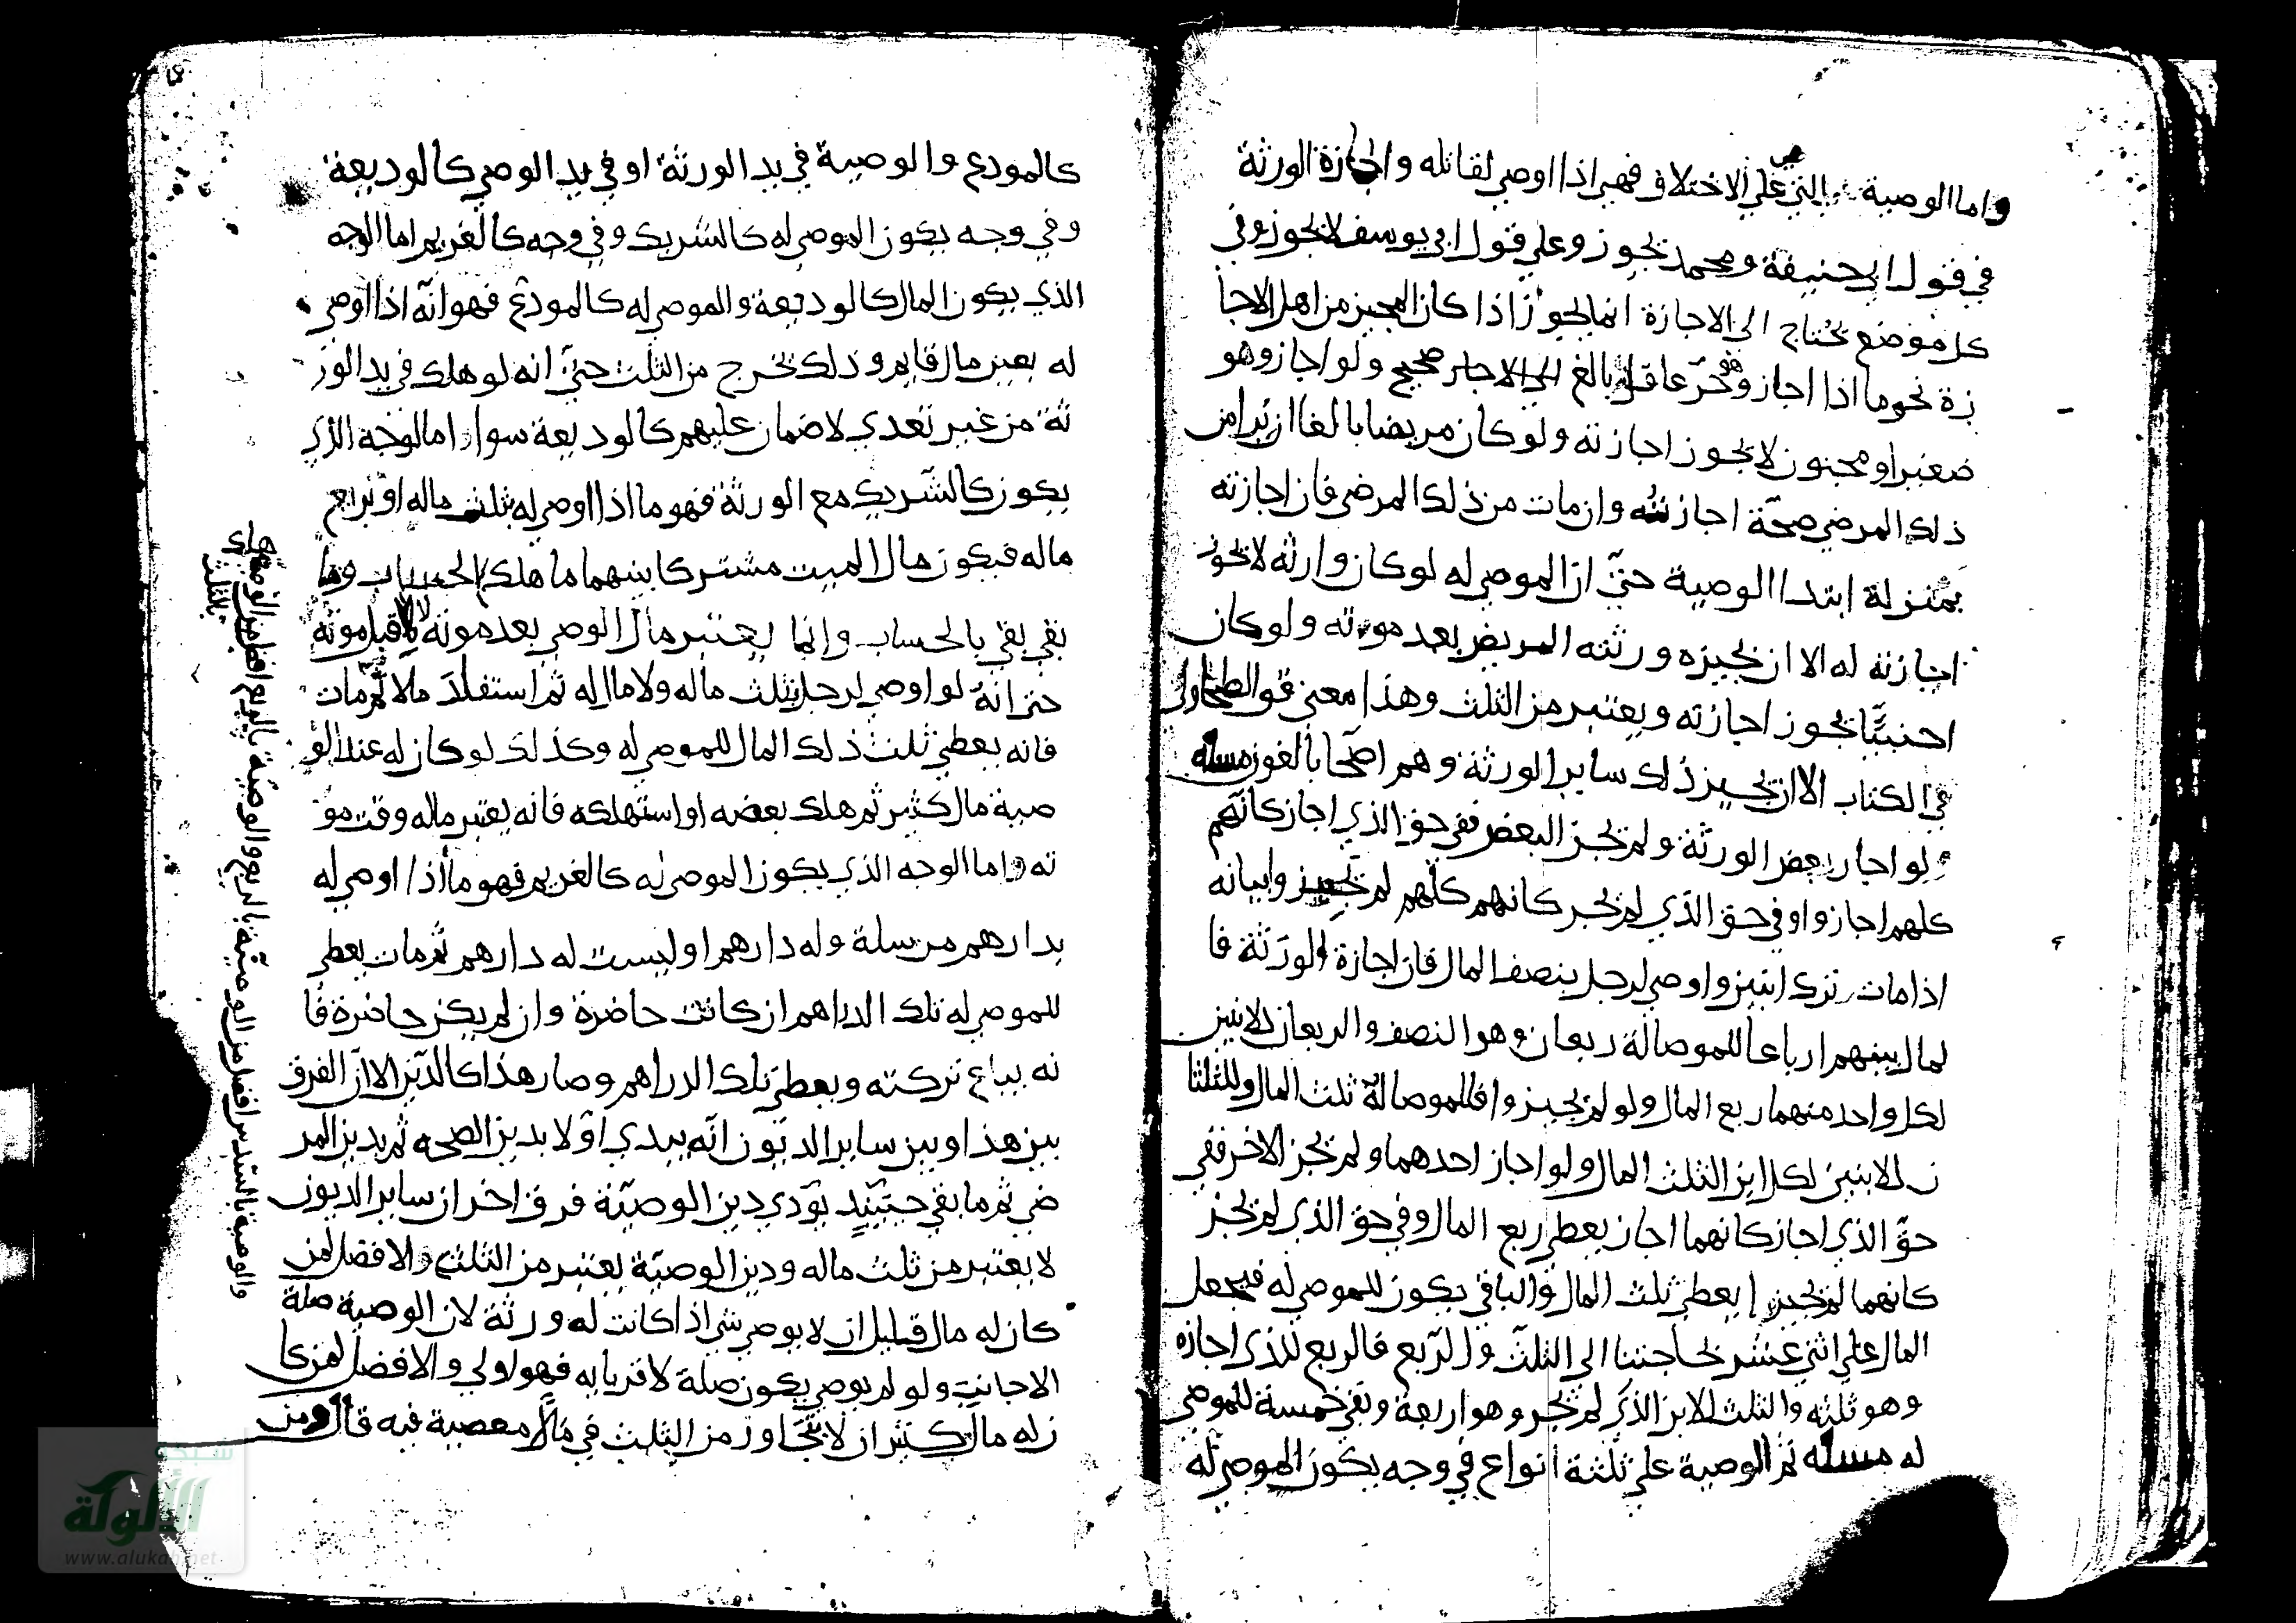 واما الوصية التي هي علي الاختلاف فهي اذا اوصي لقاتله واجازة الورثة
في قول ابي حنيفة ومحمد يجوز وعلي قول ابي يوسف لا يجوز وفي
كل موضع يحتاج الي الاجازة انما يجوز اذا كان المجيز من اهل الاجا
زة نحو ما اذا اجاز وهو حر عاقل بالغ صحيح ولو اجاز وهو
صغير او مجنون لا يجوز اجازته ولو كان مريضا بالغا ان برا من
ذلك المرض صحة اجازته وان مات من ذلك المرض فان اجازته
بمنزلة ابتدا الوصية حتي ان الموصي له لو كان وارثه لا يجوز
اجازته له الا ان يجيزه ورثته المريض بعد موته ولو كان
اجنبيا يجوز اجازته ويعتبر من الثلث وهذا معني قول الطحاوي
في الكتاب الا ان يجيز ذلك ساير الورثة وهم اصحا بالغون مسله
ولو اجاز بعض الورثة ولم يجز البعض ففي حق الذي اجاز كانهم
كلهم اجازوا وفي حق الذي لم يجز كانهم كلهم لم يجيزوا بيانه
اذا مات ترك ابنين واوصي لرجل بنصف المال فان اجازة الورثة فا
لمال بينهم ارباعا للموصا له ربعان وهو النصف والربعان للابنين
لكل واحد منهما ربع المال ولو لم يجيزوا فللموصا له ثلث المال والثلثا
ن للابنين لكل ابن الثلث المال ولو اجاز احدهما ولم يجز الاخر ففي
حق الذي اجاز كانهما اجاز يعطي ربع المال وفي حق الذي لم يجز
كانهما لم يجيزا يعطي ثلث المال والباقي يكون للموصي له فيجعل
المال علي اثني عشر لحاجتنا الي الثلث والربع فالربع للذي اجازه
وهو ثلثه والثلث للابن الذي لم يجز وهو اربعة وبقي خمسة للموصي
له مسله ثم الوصية علي ثلثة انواع في وجه يكون الموصي له
كالمودع والوصية في يد الورثة او في يد الوصي كالوديعة
وفي وجه يكون الموصي له كالشريك وفي وجه كالغريم اما الوجه
الذي يكون المال كالوديعة والموصي له كالمودع فهو انه اذا اوصي
له بعين مال قايم وذلك يخرج من الثلث حتي انه لو هلك في يد الور
ثة من غير تعدي لا ضمان عليهم كالوديعة سوا واما الوجه الذي
يكون كالشريك مع الورثة فهو ما اذا اوصي له بثلث ماله او بربع
ماله فيكون مال الميت مشتركا بينهما ما هلك بالحساب وما
بقي بقي بالحساب وانما يعتبر مال الموصي بعد موته لا قبل موته
حتي انه لو اوصي لرجل بثلث ماله ولا مال له ثم استفاد مالا ثم مات
فانه يعطي ثلث ذلك المال للموصي له وكذلك لو كان له عند الو
صية مال كثير ثم هلك بعضه او استهلكه فانه يعتبر ماله وقت مو
ته واما الوجه الذي يكون الموصي له كالغريم فهو ما اذا اوصي له
بدارهم مرسلة وله دارهم او ليست له دارهم ثم مات يعطي
للموصي له تلك الدراهم ان كانت حاضرة وان لم يكن حاضرة فا
نه يباع تركته ويعطي تلك الدراهم وصار هذا كالدين الا ان الفرق
بين هذا وبين ساير الديون انه يبدي اولا بدين الصحه ثم بدين المر
ض ثم ما بقي حينيذ يودي دين الوصية فرق اخر ان ساير الديون
لا يعتبر من ثلث ماله ودين الوصية يعتبر من الثلث والافضل لمن
كان له مال قليل ان لا يوصي شي اذا كانت له ورثة لان الوصية صلة
الاجانب ولو لم يوصي يكون صلة لاقربايه فهو اولي والافضل لمن كا
ن له مال كثير ان لا يتجاوز من الثلث في مالا معصية فيه قال ومن
والوصية بالسدس افضل من الوصية بالربع والوصية بالربع افضل من الوصية
بالثلث
الألوكة
www.alukah.net